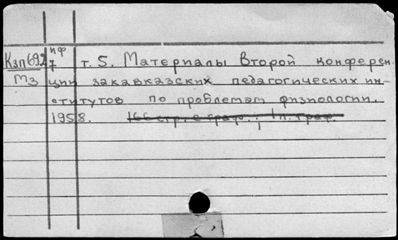 пф
Кзп692 7 т. 5. Материалы Второй конферен
М3 ции закавказских педагогических ин-
ститутов по проблемам физиологии.
1958. 166 стр. с граф.; 1 л. граф.